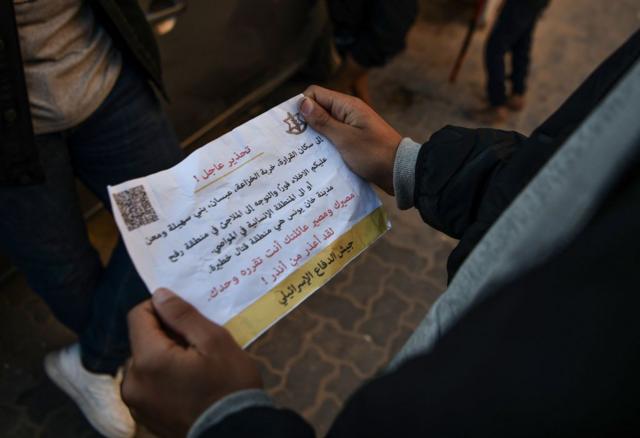 تحذير عاجل !
إلى سكان القرارة، خربة الخزاعة، عبسان، بني سهيلة ومعن
عليكم الاخلاء فورًا والتوجه الى الملاجئ في منطقة رفح
أو الى المنطقة الإنسانية في المواصي.
مدينة خان يونس هي منطقة قتال خطيرة.
مصيرك ومصير عائلتك أنت تقرره وحدك.
لقد أعذر من أنذر !
جيش الدفاع الإسرائيلي